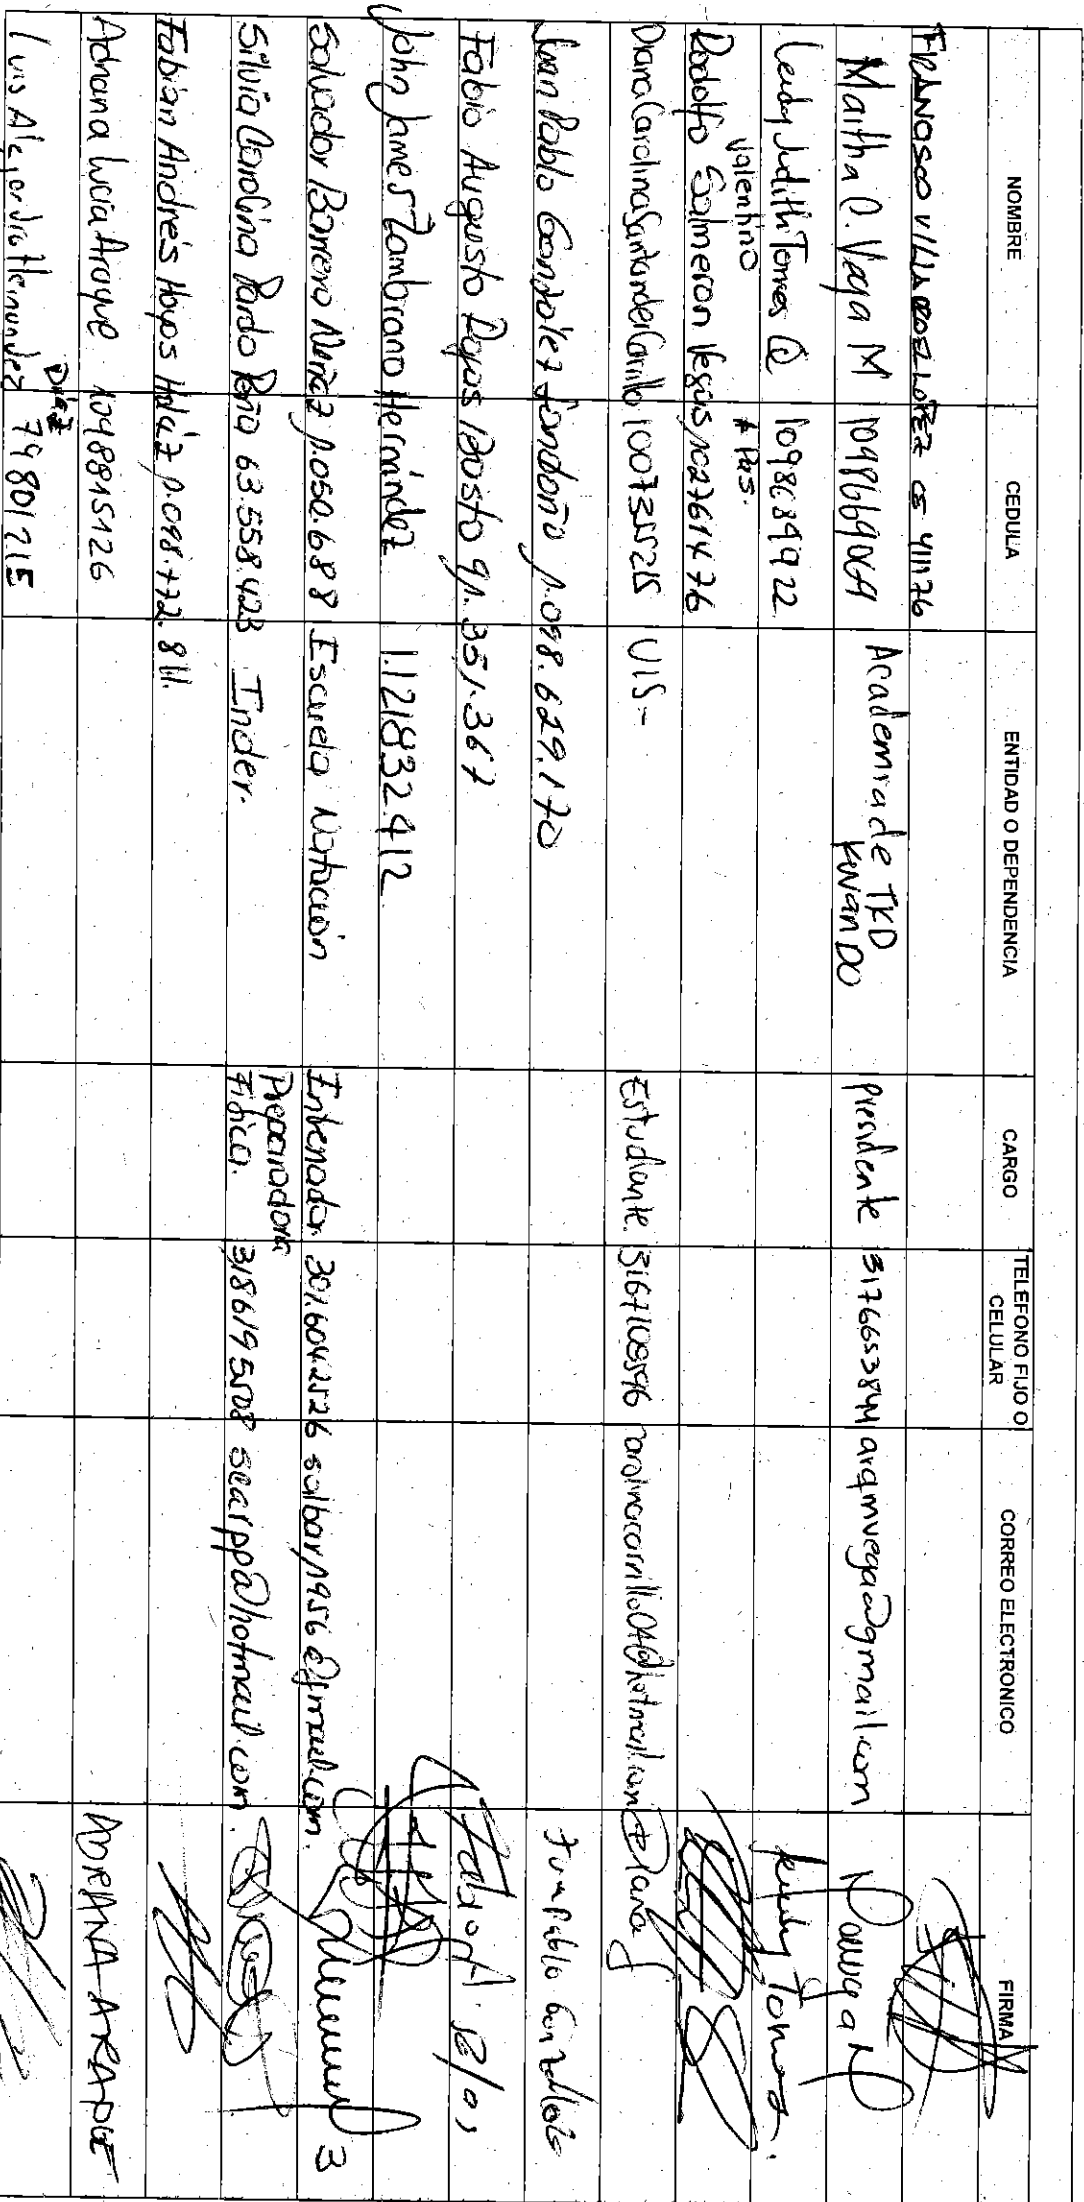 NOMBRE CEDULA ENTIDAD O DEPENDENCIA CARGO TELEFONO FIJO O CELULAR CORREO ELECTRONICO FIRMA
LOPEZ CE 411176
Martha C. Vega M 1098669069 Academia de TKD KWAN DO Presidente 3176653844 arqmvega@gmail.com
Leidy Judith Torres Q 1098689922 Leidy Torres.
Valentino * Pas.
Rodolfo Salmeron Vegas 102761476
Diana Carolina Santander Carrillo 1007355215 UIS- Estudiante. carolinacarrillo04@hotmail.com Diana
Juan Pablo González Londoño 1.098.629.170 Juan Pablo González
Fabio Augusto Rojas Basto 91.351.367
John James Zambrano Hernández 1.121832.412
Salvador Barrera Nuñez 1.050.688 Escuela Natación Entrenador. 301.6042526 salbar1956@gmail.com. 3
Silvia Carolina Pardo Peña 63.558.423 Inder. Preparadora Física. 3186195508 scarpp@hotmail.com.
Fabián Andrés Hoyos 1.098.772.811.
Adriana Lucia Araque 1098815126 ADRIANA ARAQUE
Luis Alejandro Hernandez Diaz 74801215